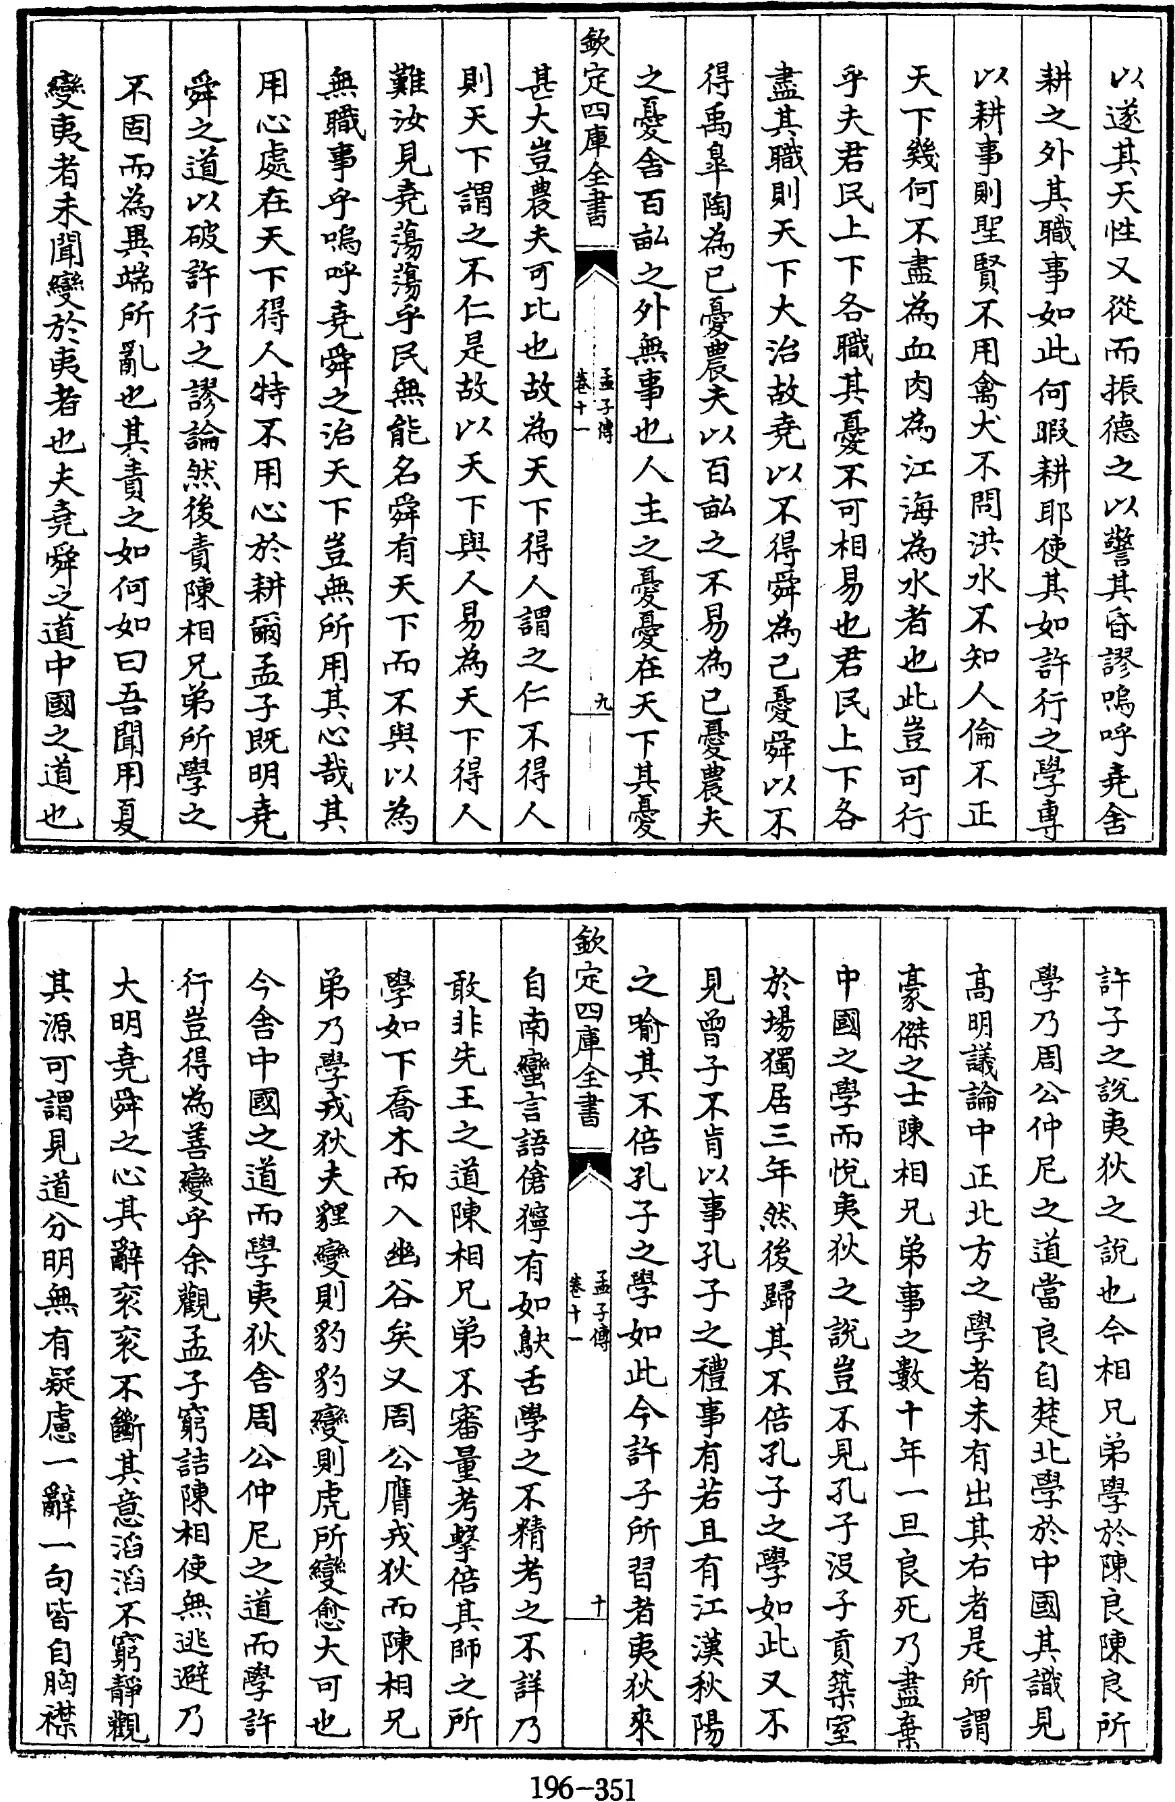 以遂其天性又從而振德之以警其昏謬嗚呼堯舍
耕之外其職事如此何暇耕耶使其如許行之學專
以耕事則聖賢不用禽犬不問洪水不知人倫不正
天下幾何不盡為血肉為江海為水者也此豈可行
乎夫君民上下各職其憂不可相易也君民上下各
盡其職則天下大治故堯以不得舜為己憂舜以不
得禹臯陶為已憂農夫以百畝之不易為已憂農夫
之憂舍百畝之外無事也人主之憂憂在天下其憂
欽定四庫全書
孟子傳
卷十一
九
甚大豈農夫可比也故為天下得人謂之仁不得人
則天下謂之不仁是故以天下與人易為天下得人
難汝見堯蕩蕩乎民無能名舜有天下而不與以為
無職事乎嗚呼堯舜之治天下豈無所用其心哉其
用心處在天下得人特不用心於耕爾孟子既明堯
舜之道以破許行之謬論然後責陳相兄弟所學之
不固而為異端所亂也其責之如何如曰吾聞用夏
變夷者未聞變於夷者也夫堯舜之道中國之道也
許子之説夷狄之説也今相兄弟學於陳良陳良所
學乃周公仲尼之道當良自楚北學於中國其識見
高明議論中正北方之學者未有出其右者是所謂
豪傑之士陳相兄弟事之數十年一旦良死乃盡棄
中國之學而悅夷狄之説豈不見孔子没子貢築室
於場獨居三年然後歸其不倍孔子之學如此又不
見曾子不肯以事孔子之禮事有若且有江漢秋陽
之喻其不倍孔子之學如此今許子所習者夷狄來
欽定四庫全書
孟子傳
卷十一
十
自南蠻言語傖獰有如鴃舌學之不精考之不詳乃
敢非先王之道陳相兄弟不審量考擊倍其師之所
學如下喬木而入幽谷矣又周公膺戎狄而陳相兄
弟乃學戎狄夫貍變則豹豹變則虎所變愈大可也
今舍中國之道而學夷狄舍周公仲尼之道而學許
行豈得為善變乎余觀孟子窮詰陳相使無逃避乃
大明堯舜之心其辭衮衮不斷其意滔滔不窮靜觀
其源可謂見道分明無有疑慮一辭一句皆自胸襟
196-351